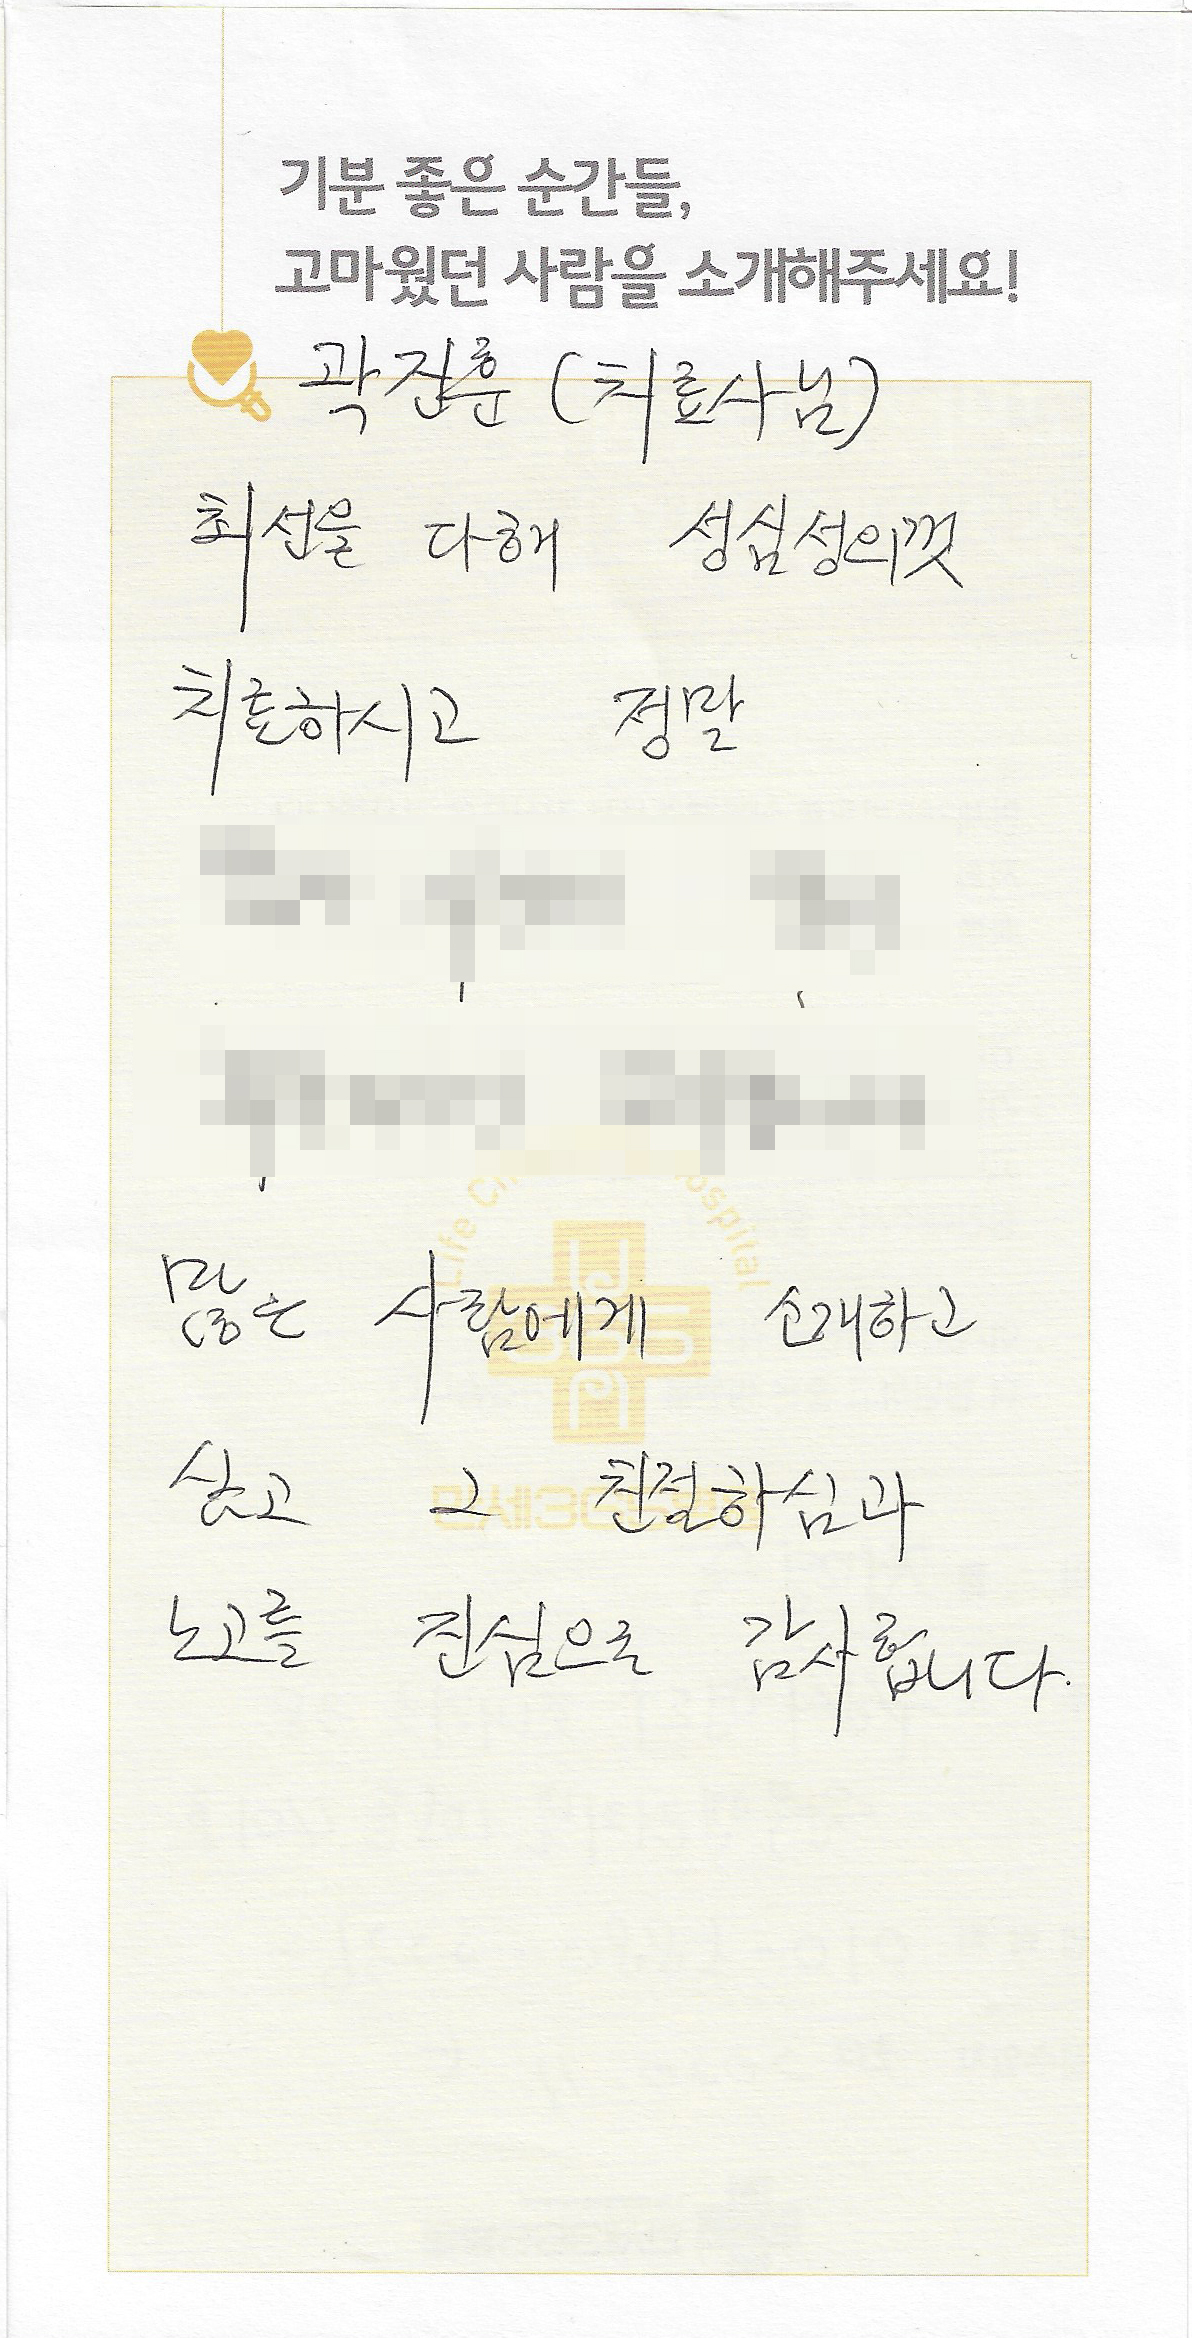 기분 좋은 순간들,
고마웠던 사람을 소개해주세요!
곽진훈 (치료사님)
최선을 다해 성심성의껏
치료하시고 정말
많은 사람에게 소개하고
싶고 그 친절하심과
노고를 진심으로 감사합니다.